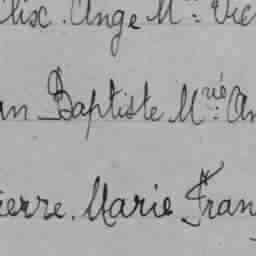 lix. Ange M.
an Baptiste M.rie An
ierre. Marie Fran